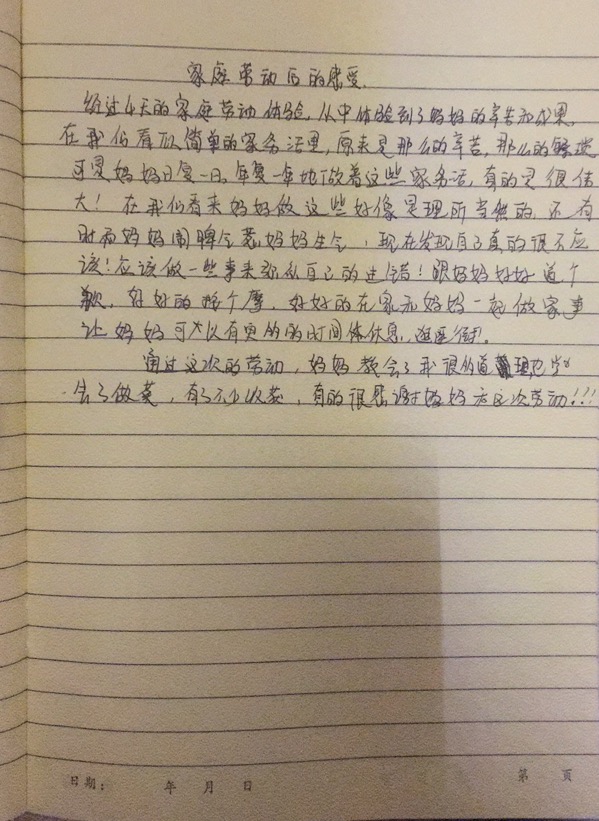 家庭劳动后的感受.
经过4天的家庭劳动体验,从中体验到了妈妈的辛苦和成果,
在我们看似简单的家务活里,原来是那么的辛苦,那么的
可是妈妈日复一日,年复一年地做着这些家务活,真的是很伟
大!在我们看来妈妈做这些好像是理所当然的,还有
时和妈妈闹脾气惹妈妈生气,现在发现自己真的很不应
该!应该做一些事来弥补自己的过错!跟妈妈好好道个
歉,好好的捶个摩,好好的在家和妈妈一起做家事
让妈妈可以有更多的时间休息,逛逛街.
通过这次的劳动,妈妈教会了我很多道理也学
会了做菜,有了不少收获,真的很感谢妈妈与这次劳动!!!
日期: 年 月 日
第 页